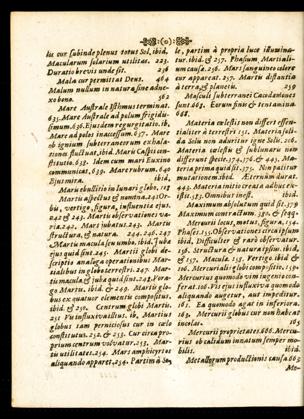 lis cur subinde plenus totus Sol, ibid.
Macularum solarium utilitas. 223.
Duratio brevis unde sit. 236
Mala cur permittat Deus. 464
Malum nullum in natura sine adne-
xo bono. 362
Mare Australe Isthmus terminat.
635. Mare Australe ad polum frigidis-
simum. 636. Ejusdem regurgitatio. ib.
Mare ad polos inaccessum. 637. Mare
ob ignium subterraneorum exhala-
tiones fluctuat, ibid. Maris Caspii con-
stitutio. 638. Idem cum mari Euxino
communicat, 639. Mare rubrum. 640
Ejus mira.
Maris ebullitio in lunari globo, 113
Martis aspectus & nomina. 242 Or-
bis, vertigo, figura, influentia ejus,
242 & 243. Martis observationes va-
ria. 242. Mars jubatus. 243. Martis
structura, & natura. 244. 246. 247
Martis macula seu umbo. ibid. Juba
ejus quid sint. 245. Martii globi de-
scriptio analoga operationibus Mar-
tialibus in globo terrestri. 247. Mar-
tis macula & juba quid sint. 248. Forma
Martis. ibid. & 249. Martius glo-
bus ex quatuor elementis compositus,
ibid. & 250. Centrum globi Martii.
251. Vis influxiva illius. ib. Martius
globus tam perniciosus cur in cælo
constitutus. 252. & 253. Cur circa pro-
prium centrum volvatur. 253. Mar-
tis utilitates. 254. Mars amphicyrtos
aliquando apparet. 254. Partim à So-
le, partim à propria luce illumina-
tur. ibid. & 257. Phasium Martiali-
um causa. 256. Mars sanguineo colore
cur appareat. 257. Martis distantia
à terra, & planetis. 259
Masculi subterranei Cacodæmones
sunt. 661. Eorum finis & tentamina
668.
Materia cælestis non differt essen-
tialiter à terrestri 151. Materia soli-
da Solis non aduritur igne Solis. 216.
Materia cælestis & sublunaris non
differunt specie. 374. 376, & 443. Ma-
teria prima quid sit. 375. Non patitur
mutationem. ibid. Æternùm durat.
443. Materia initio creata adhuc ex-
istit. 373. Omnibus inest. ibid.
Maximum absolutum quid sit. 379
Maximum contractum. 375 & seqq.
Mercurii locus, motus, figura, 154.
Phases. 155. Observationes circa ipsum
ibid. Difficulter & rarò observatur.
156. Structura & natura ipsius. ibid.
& 157. Macula. 158. Vertigo. ibid &
160. Mercurialis globi compositio. 159.
Mercurius quomodo vim ingenio con-
ferat. 106. Vis ejus influxiva quomodo
aliquando augetur, aut impeditur.
161. Ea quomodo agat in inferiora.
163. Mercurii globus cur non habeat
incolas. 165
Mercurii proprietates. 686. Mercu-
rius ob calidum innatum semper mo-
bilis. ib.
Metallorum productionis causa. 663
Me-